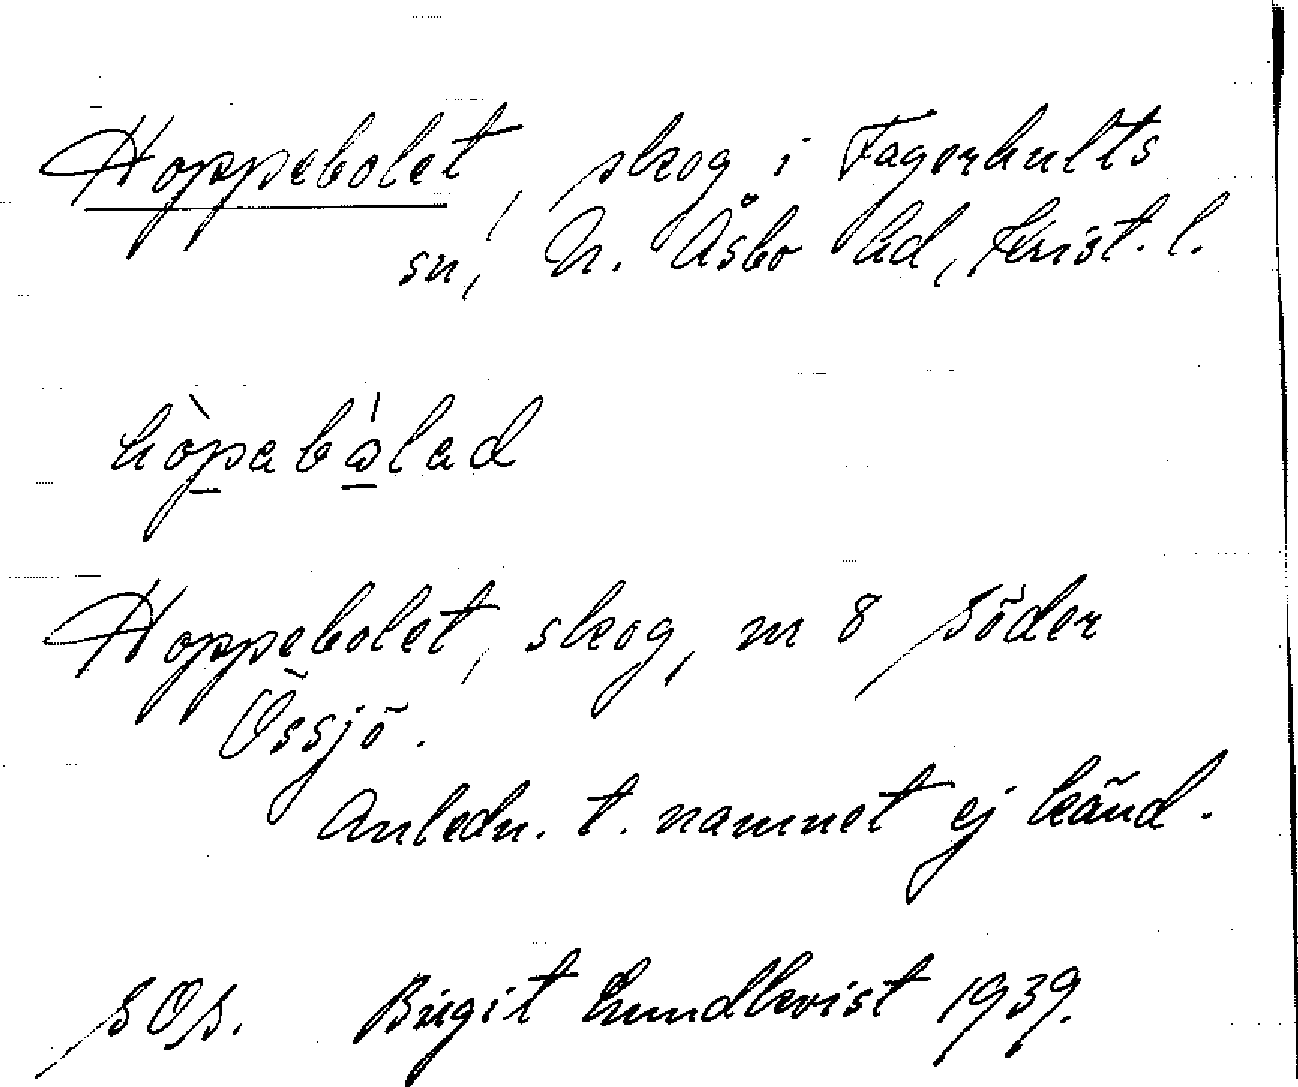 Hoppebolet, skog i Fagerhults
sn, N. Åsbo hd, Krist. l.
hòpabálad
Hoppebolet, skog, m 8 Söder
Össjö.
Anledn. t. namnet ej känd.
SOS. Birgit Lundkvist 1939.